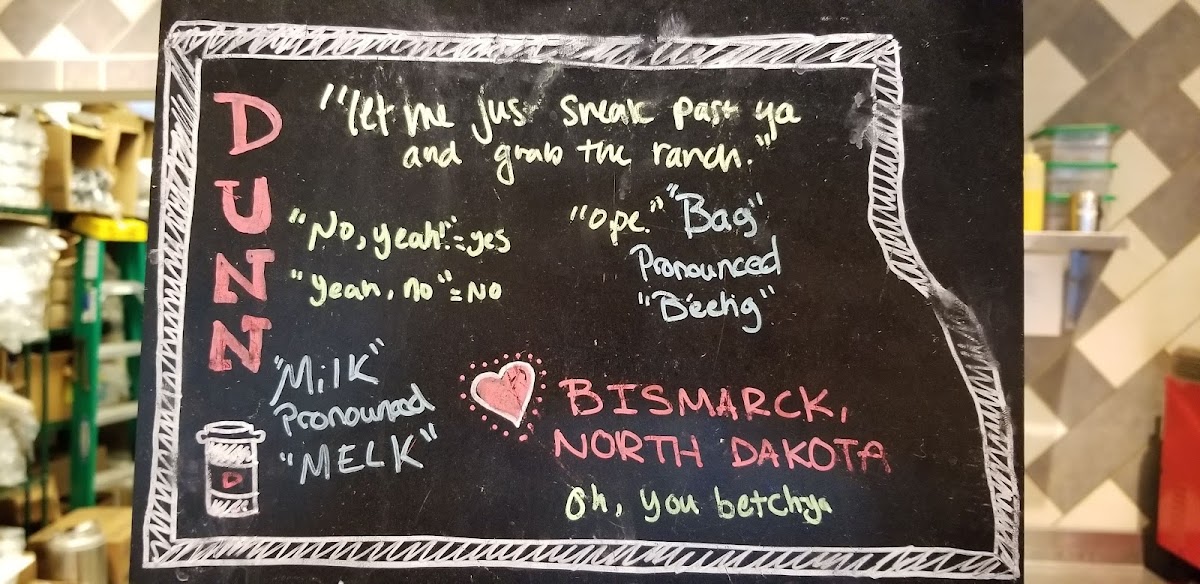 DUNN
"let me just sneak past ya
and grab the ranch."
"No, yeah!"=yes
"yeah, no"=No
"ope."
"Bag"
Pronounced
"Béehg"
"Milk"
Pronounced
"MELK"
BISMARCK,
NORTH DAKOTA
Oh, you betchya
D